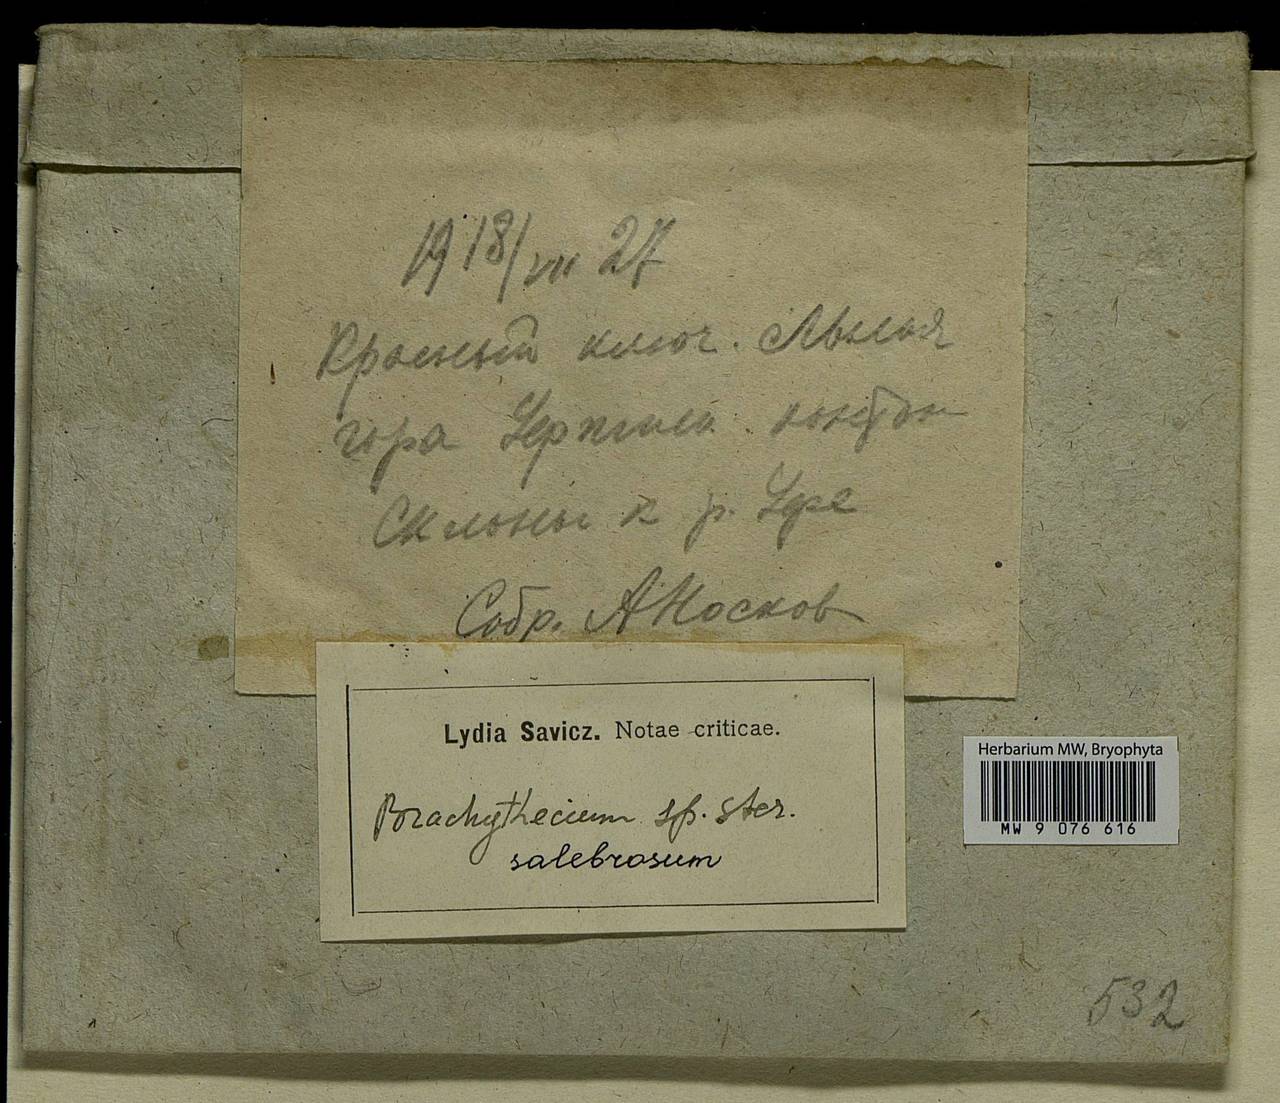 1918/VII 27
Красный ключ. Лысая
гора
Склоны к р. Уфе
Собр. А Носков
Lydia Savicz. Notae criticae.
Brachythecium sp. ster.
salebrosum
Herbarium MW, Bryophyta
MW 9 076 616
532